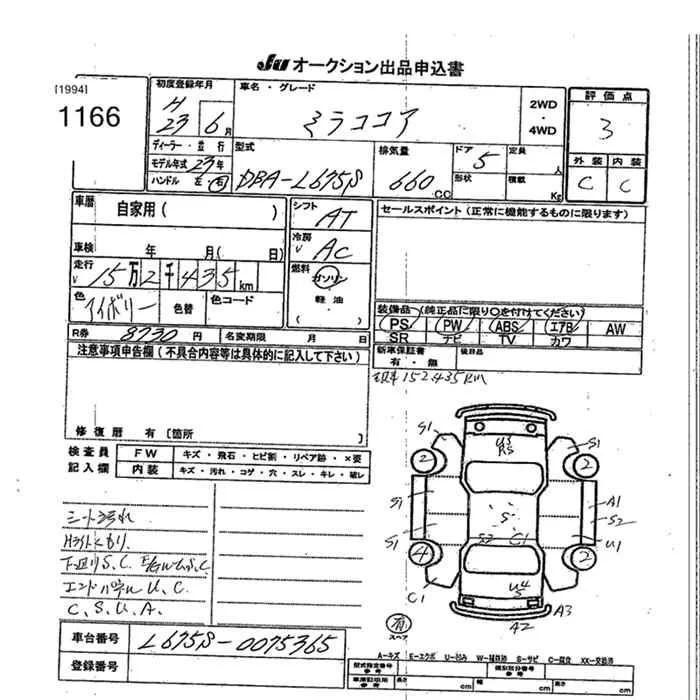 JU オークション出品申込書
[1994]
1166
初度登録年月
H
23 6月
車名・グレード
ミラココア
2WD
・
4WD
評価点
3
ディーラー・並行
モデル年式 23年
ハンドル 左・右
型式
DBA-L675S
排気量
660 CC
ドア 5
形状
定員
人
積載
Kg
外装 内装
C C
車歴
自家用( )
車検 年 月( 日)
走行
15万2千435km
色
アイボリー
色替
色コード
シフト
AT
冷房
AC
燃料
ガソリン
軽油
( )
セールスポイント(正常に機能するものに限ります)
装備品 (純正品に限り○を付けてください)
PS PW ABS エアB AW
SR ナビ TV カワ
新車保証書
有・無
後日品
152.435km
R券 8730円
名変期限 月 日
注意事項申告欄(不具合内容等は具体的に記入して下さい)
修復歴 有〔箇所 〕
検査員
記入欄
FW キズ・飛石・ヒビ割・リペア跡・×要
内装 キズ・汚れ・コゲ・穴・スレ・キレ・破レ
シート汚れ
Hライトくもり
下廻りS.C. E/G W/L S.C
エンドパネルU.C
C.S.U.A.
S1
S1
2
2
S1
A1
S2
S
S1
S2
C1
U1
4
2
C1
A3
A2
有
スペア
車台番号 L675S-0075365
登録番号
A－キズ E－エクボ U－凹み W－補修跡 S－サビ C－腐食 XX－交換済
型式指定番号
類別区分番号
車庫証明用
参考
長さ cm
幅 cm
高さ cm